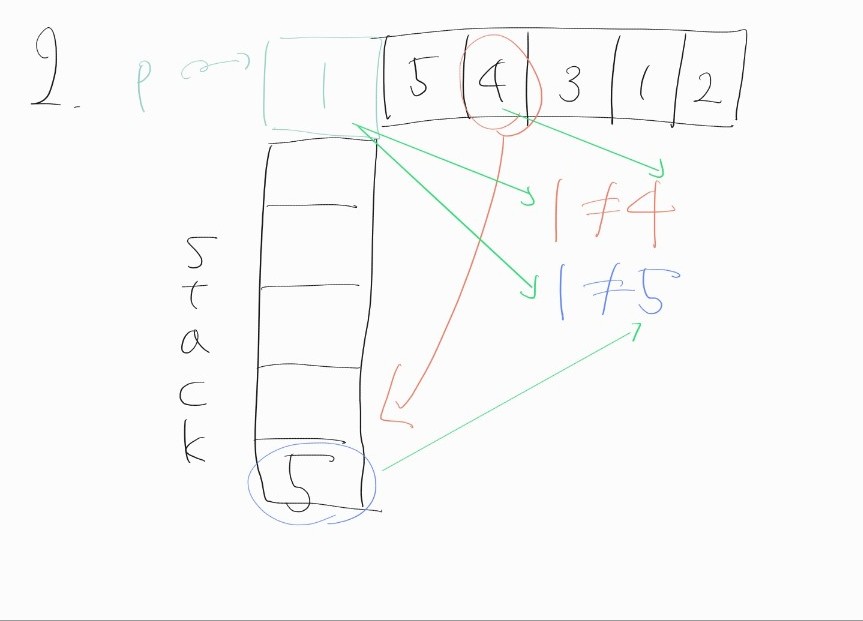 2. p 1 5 4 3 1 2
1 ≠ 4
1 ≠ 5
S
t
a
c
k
5